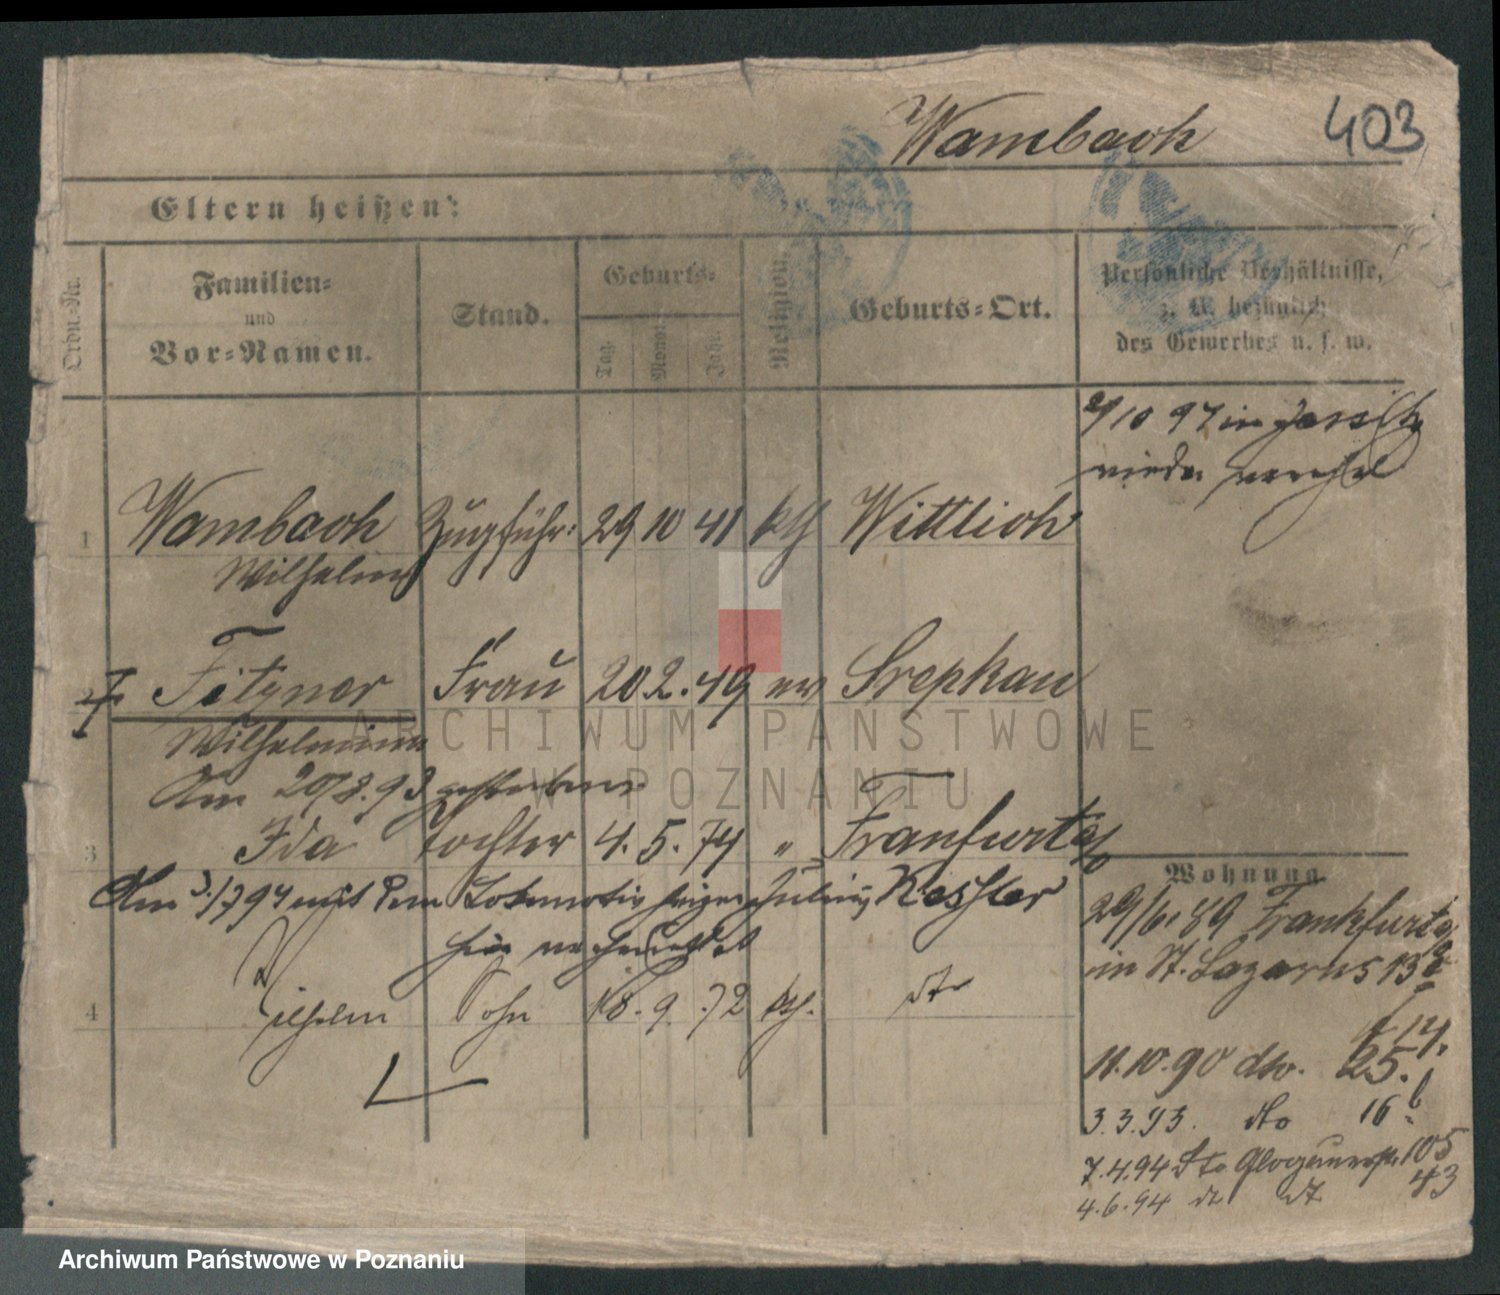 Wambach 403
Eltern heißen:
Ordn.-Nr.
Familien-
und
Vor-Namen.
Stand.
Geburts-
Tag. Monat. Jahr.
Religion.
Geburts-Ort.
Persönliche Verhältnisse,
z. B. bezüglich
des Gewerbes u. s. w.
/10 97 in
wieder
1 Wambach Zugführ: 29 10 41 kth Wittlich
Wilhelm
Fitzner Frau 20 2. 49 ev Srephan
Wilhelmine
Am 20/8.93 gestorben
3 Ida Tochter 4. 5. 74 " Franfurt a/o
Am 3./7 94 mit dem Lokomotivheizer Julius Kessler
hier verheirathet
4 Wilhelm Sohn 18. 9. 72 kth. dto
Wohnung.
29/6.89 Frankfurt a/o
in St. Lazarus 13
14.
11.10.90 dto. 25.
3.3.93. dto 16 b
7.4.94 dto Glogauerstr. 105
4.6.94 dt dt 43
ARCHIWUM PAŃSTWOWE
W POZNANIU
Archiwum Państwowe w Poznaniu